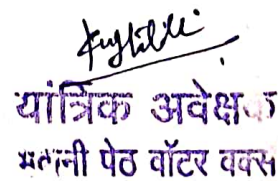 यांत्रिक अवेक्षक
भवानी पेठ वॉटर वर्क्स